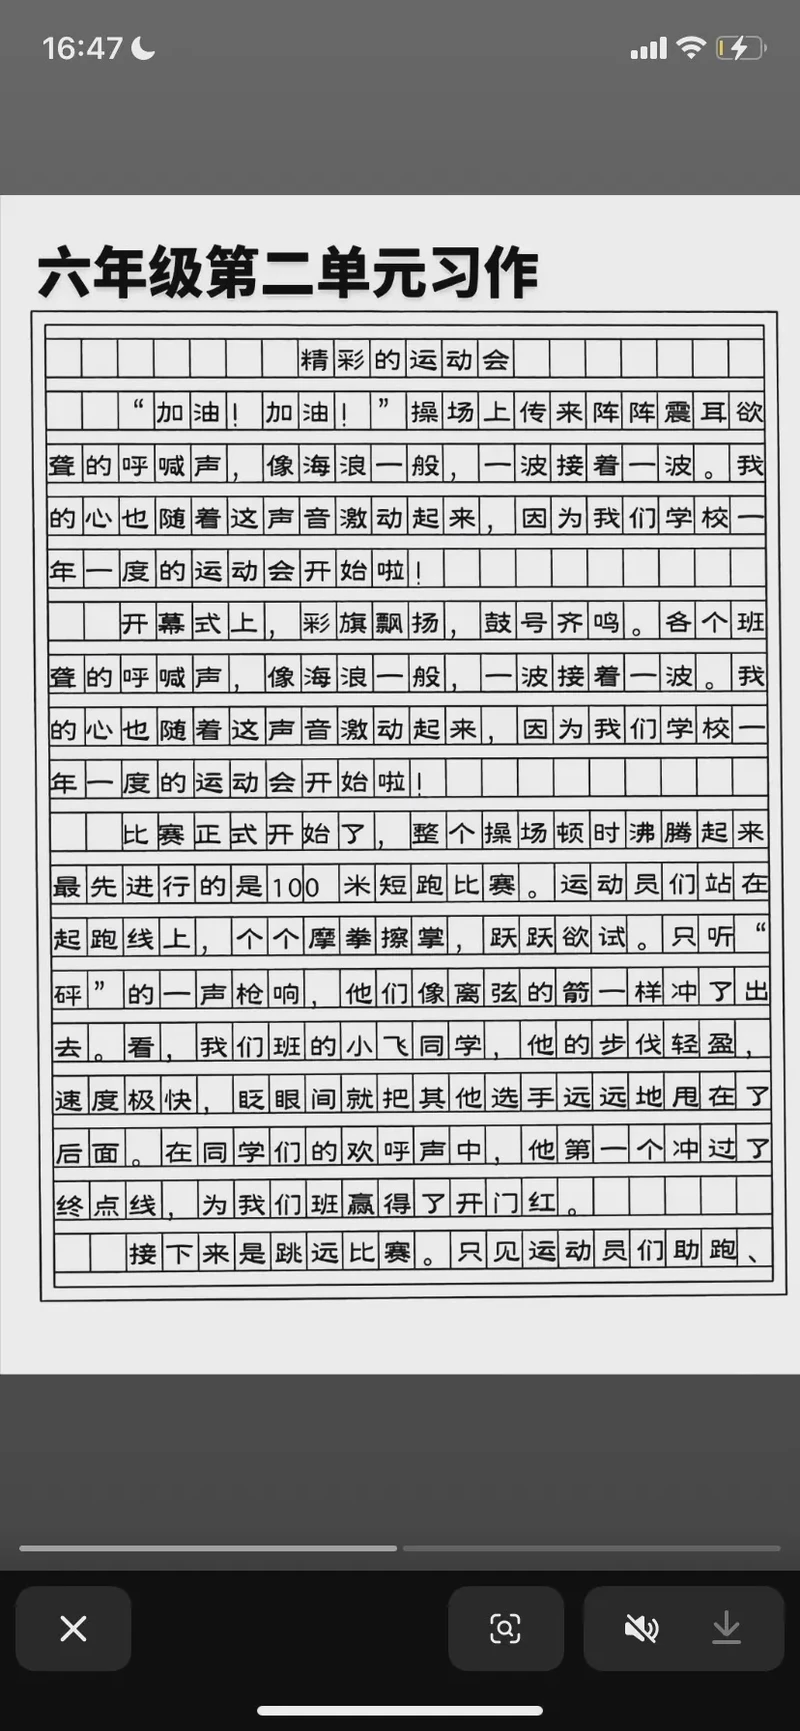 16:47
六年级第二单元习作
精彩的运动会
“加油！加油！”操场上传来阵阵震耳欲
聋的呼喊声，像海浪一般，一波接着一波。我
的心也随着这声音激动起来，因为我们学校一
年一度的运动会开始啦！
开幕式上，彩旗飘扬，鼓号齐鸣。各个班
聋的呼喊声，像海浪一般，一波接着一波。我
的心也随着这声音激动起来，因为我们学校一
年一度的运动会开始啦！
比赛正式开始了，整个操场顿时沸腾起来
最先进行的是100米短跑比赛。运动员们站在
起跑线上，个个摩拳擦掌，跃跃欲试。只听“
砰”的一声枪响，他们像离弦的箭一样冲了出
去。看，我们班的小飞同学，他的步伐轻盈，
速度极快，眨眼间就把其他选手远远地甩在了
后面。在同学们的欢呼声中，他第一个冲过了
终点线，为我们班赢得了开门红。
接下来是跳远比赛。只见运动员们助跑、